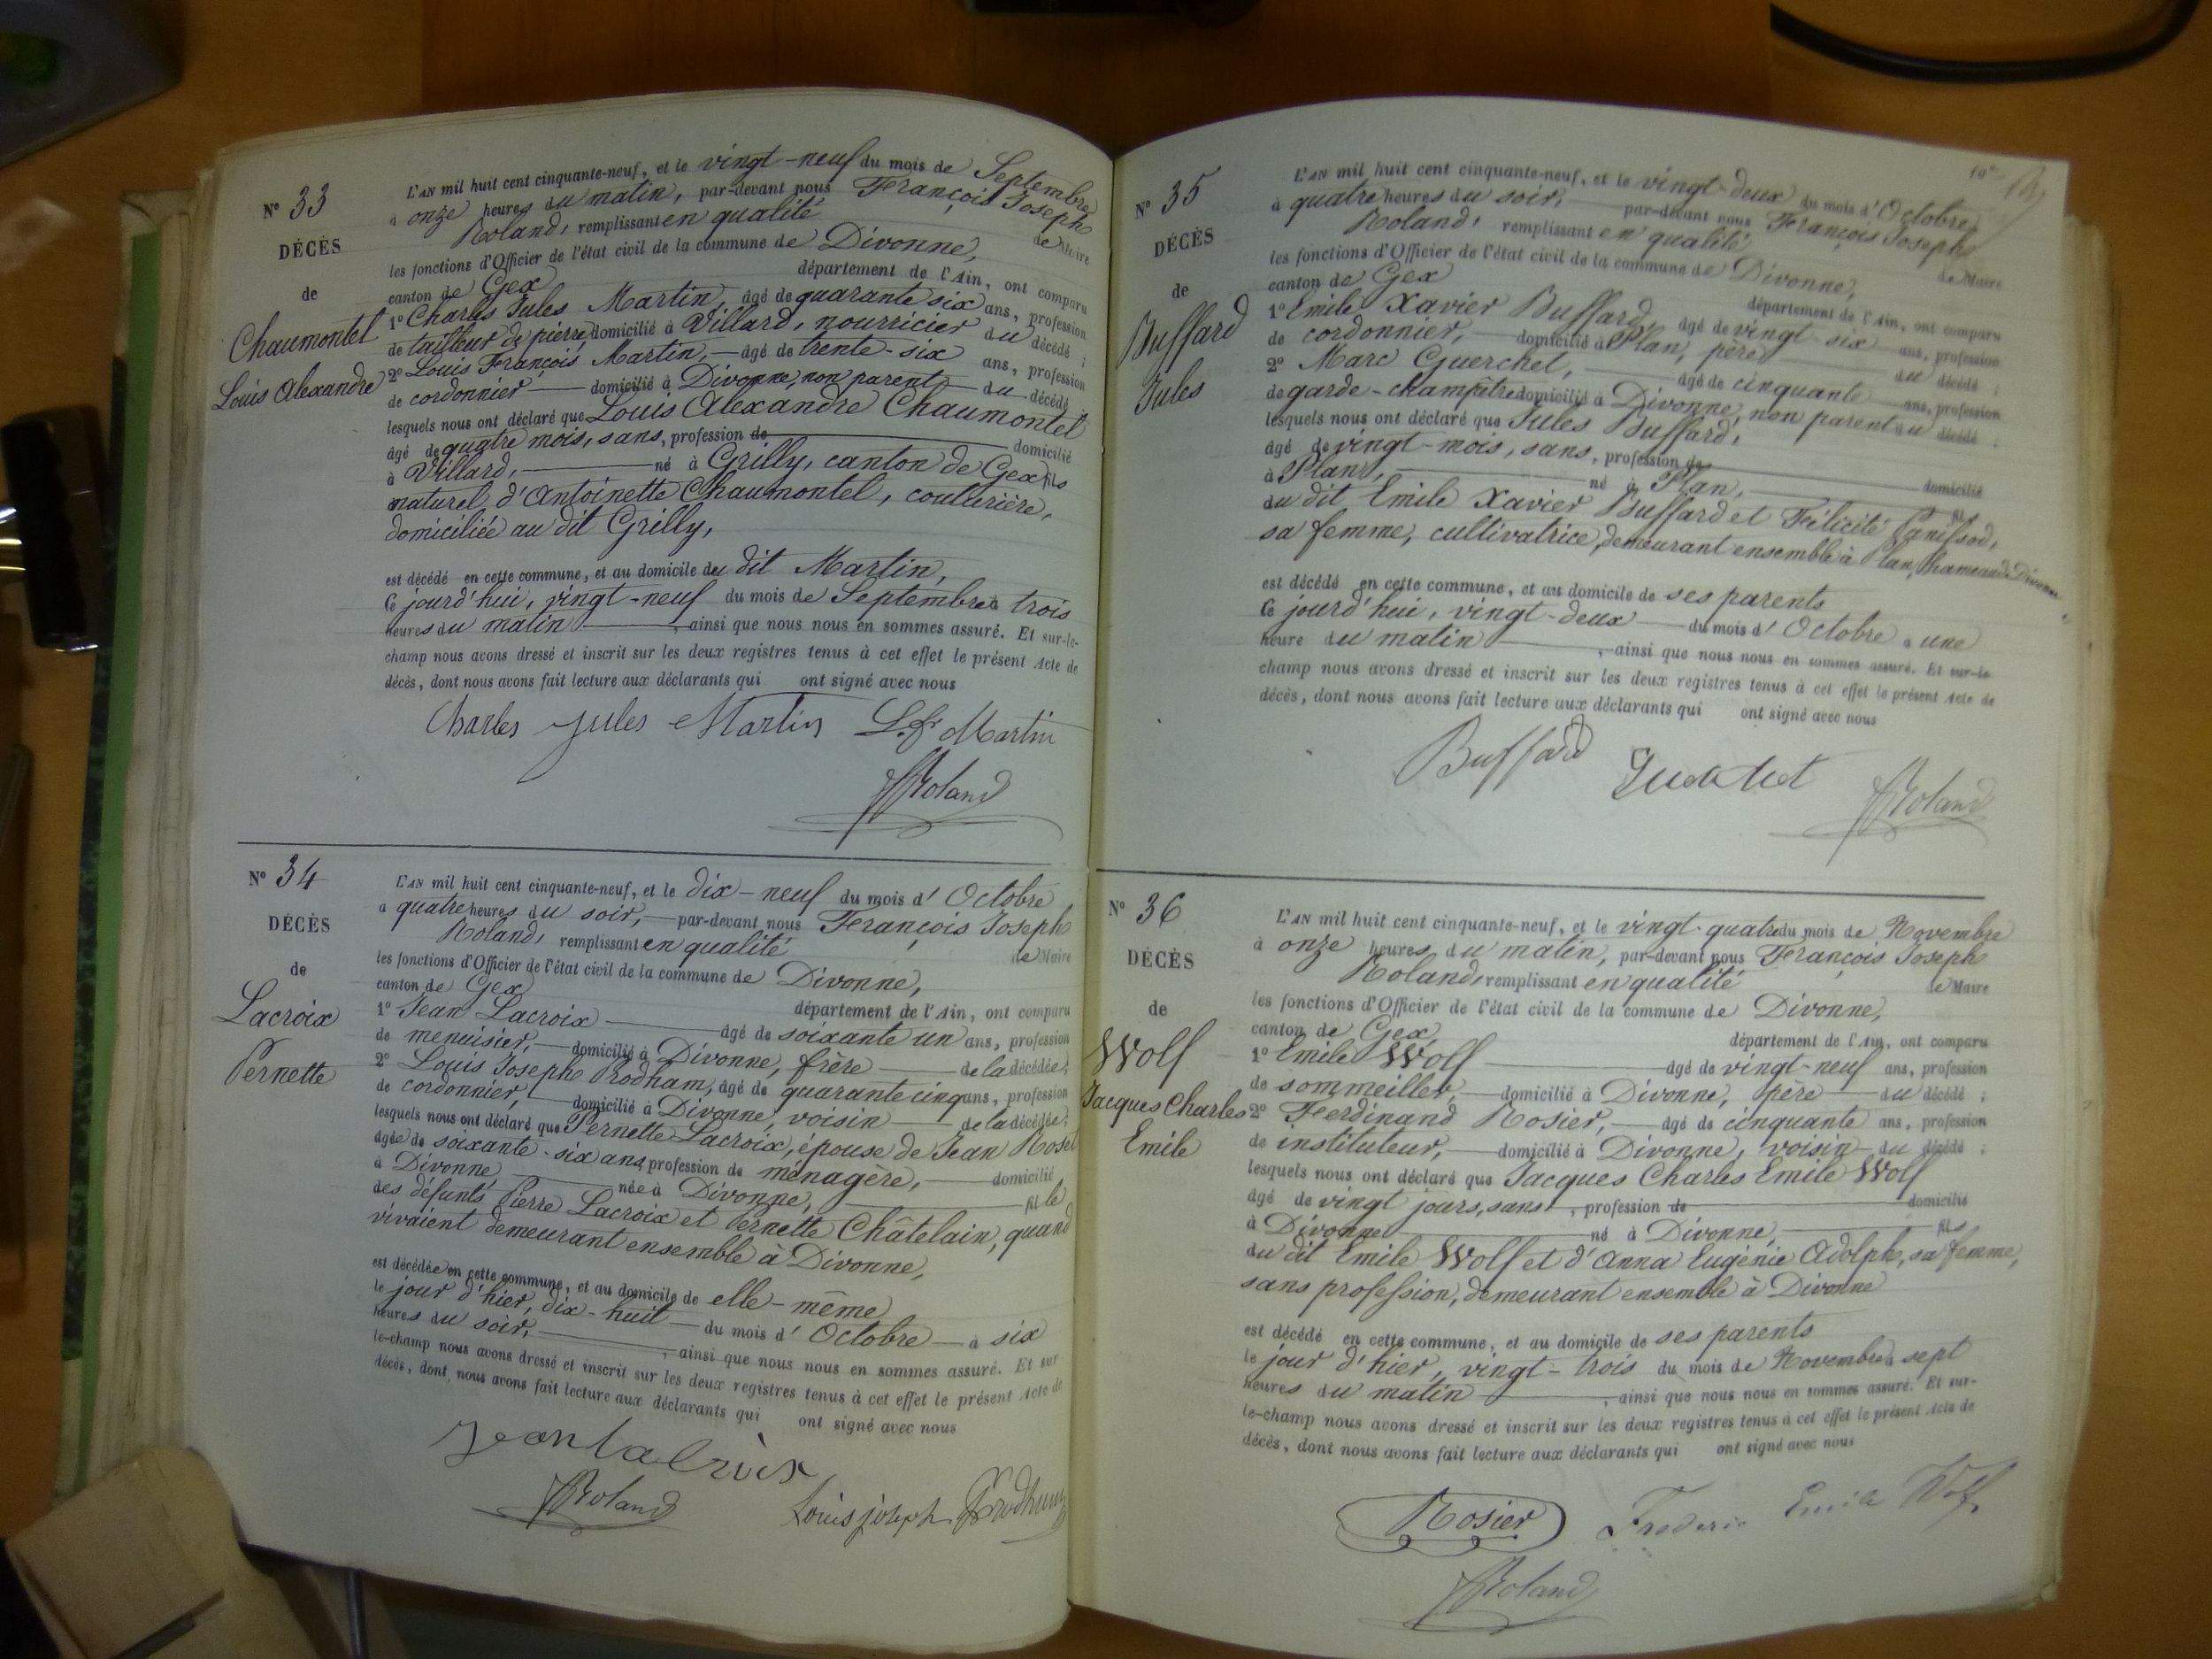 N° 33
DÉCÈS
de
Chaumontel
Louis Alexandre
L'AN mil huit cent cinquante-neuf, et le vingt-neuf du mois de Septembre
à onze heures du matin, par-devant nous François Joseph
Roland, remplissant en qualité de Maire
les fonctions d'Officier de l'état civil de la commune de Divonne,
canton de Gex département de l'Ain, ont comparu
1° Charles Jules Martin, âgé de quarante six ans, profession
de tailleur de pierre, domicilié à Villard, nourricier du décédé ;
2° Louis François Martin, âgé de trente-six ans, profession
de cordonnier domicilié à Divonne, non parent du décédé
lesquels nous ont déclaré que Louis Alexandre Chaumontel
âgé de quatre mois, sans, profession de domicilié
à Villard, né à Grilly, canton de Gex fils
naturel d'Antoinette Chaumontel, couturière,
domiciliée au dit Grilly,
est décédé en cette commune, et au domicile du dit Martin,
Ce jourd'hui, vingt-neuf du mois de Septembre à trois
heures du matin, ainsi que nous nous en sommes assuré. Et sur-le-
champ nous avons dressé et inscrit sur les deux registres tenus à cet effet le présent Acte de
décès, dont nous avons fait lecture aux déclarants qui ont signé avec nous
Charles jules Martin L. fr Martin
Roland
N° 34
DÉCÈS
de
Lacroix
Pernette
L'AN mil huit cent cinquante-neuf, et le dix-neuf du mois d'Octobre
à quatre heures du soir, par-devant nous François Joseph
Roland, remplissant en qualité de Maire
les fonctions d'Officier de l'état civil de la commune de Divonne,
canton de Gex département de l'Ain, ont comparu
1° Jean Lacroix âgé de soixante un ans, profession
de menuisier, domicilié à Divonne, frère de la décédée ;
2° Louis Joseph Prodham, âgé de quarante cinq ans, profession
de cordonnier, domicilié à Divonne, voisin de la décédée ;
lesquels nous ont déclaré que Pernette Lacroix, épouse de Jean Rosel
âgée de soixante-six ans, profession de ménagère, domicilié
à Divonne née à Divonne, fille
des défunts Pierre Lacroix et Pernette Châtelain, quand
vivaient demeurant ensemble à Divonne,
est décédée en cette commune, et au domicile de elle-même
le jour d'hier, dix-huit du mois d'Octobre à six
heures du soir, ainsi que nous nous en sommes assuré. Et sur
le-champ nous avons dressé et inscrit sur les deux registres tenus à cet effet le présent Acte de
décès, dont nous avons fait lecture aux déclarants qui ont signé avec nous
Jean lacroix
Roland Louis joseph Prodham
10e
N° 35
DÉCÈS
de
Buffard
Jules
L'AN mil huit cent cinquante-neuf, et le vingt-deux du mois d'Octobre
à quatre heures du soir, par-devant nous François Joseph
Roland, remplissant en qualité de Maire
les fonctions d'Officier de l'état civil de la commune de Divonne,
canton de Gex département de l'Ain, ont comparu
1° Emile Xavier Buffard, âgé de vingt six ans, profession
de cordonnier, domicilié à Plan, père du décédé ;
2° Marc Guerchet, âgé de cinquante ans, profession
de garde-champêtre domicilié à Divonne, non parent du décédé ;
lesquels nous ont déclaré que Jules Buffard,
âgé de vingt-mois, sans, profession de domicilié
à Plan, né à Plan, fils
du dit Emile Xavier Buffard et Félicité Panissod,
sa femme, cultivatrice, demeurant ensemble à Plan, hameau de Divonne
est décédé en cette commune, et au domicile de ses parents
Ce jourd'hui, vingt-deux du mois d'Octobre à une
heure du matin, ainsi que nous nous en sommes assuré. Et sur-le
champ nous avons dressé et inscrit sur les deux registres tenus à cet effet le présent Acte de
décès, dont nous avons fait lecture aux déclarants qui ont signé avec nous
Buffard Roland
N° 36
DÉCÈS
de
Wolf
Jacques Charles
Emile
L'AN mil huit cent cinquante-neuf, et le vingt-quatre du mois de Novembre
à onze heures du matin, par-devant nous François Joseph
Roland, remplissant en qualité de Maire
les fonctions d'Officier de l'état civil de la commune de Divonne,
canton de Gex, département de l'Ain, ont comparu
1° Emile Wolf âgé de vingt-neuf ans, profession
de sommeiller, domicilié à Divonne, père du décédé ;
2° Ferdinand Rosier, âgé de cinquante ans, profession
de instituteur, domicilié à Divonne, voisin du décédé ;
lesquels nous ont déclaré que Jacques Charles Emile Wolf
âgé de vingt jours, sans, profession de domicilié
à Divonne né à Divonne, fils
du dit Emile Wolf et d'Anna Eugénie Adolph, sa femme,
sans profession, demeurant ensemble à Divonne
est décédé en cette commune, et au domicile de ses parents
le jour d'hier, vingt-trois du mois de Novembre à sept
heures du matin, ainsi que nous nous en sommes assuré. Et sur-
le-champ nous avons dressé et inscrit sur les deux registres tenus à cet effet le présent Acte de
décès, dont nous avons fait lecture aux déclarants qui ont signé avec nous
Rosier Frederic Emile Wolf
Roland